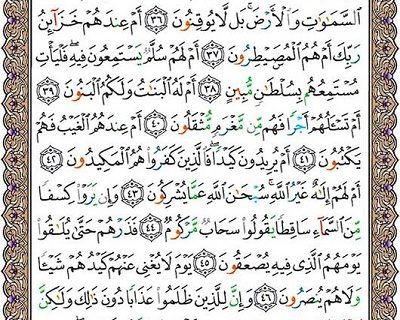 السَّمَٰوَٰتِ وَالْأَرْضَ ۚ بَل لَّا يُوقِنُونَ ﴿٣٦﴾ أَمْ عِندَهُمْ خَزَآئِنُ
رَبِّكَ أَمْ هُمُ الْمُصَۣيْطِرُونَ ﴿٣٧﴾ أَمْ لَهُمْ سُلَّمٌ يَسْتَمِعُونَ فِيهِ ۖ فَلْيَأْتِ
مُسْتَمِعُهُم بِسُلْطَٰنٍ مُّبِينٍ ﴿٣٨﴾ أَمْ لَهُ الْبَنَٰتُ وَلَكُمُ الْبَنُونَ ﴿٣٩﴾
أَمْ تَسْـَٔلُهُمْ أَجْرًا فَهُم مِّن مَّغْرَمٍ مُّثْقَلُونَ ﴿٤٠﴾ أَمْ عِندَهُمُ الْغَيْبُ فَهُمْ
يَكْتُبُونَ ﴿٤١﴾ أَمْ يُرِيدُونَ كَيْدًا ۖ فَالَّذِينَ كَفَرُوا۟ هُمُ الْمَكِيدُونَ ﴿٤٢﴾
أَمْ لَهُمْ إِلَٰهٌ غَيْرُ اللَّهِ ۚ سُبْحَٰنَ اللَّهِ عَمَّا يُشْرِكُونَ ﴿٤٣﴾ وَإِن يَرَوْا۟ كِسْفًا
مِّنَ السَّمَآءِ سَاقِطًا يَقُولُوا۟ سَحَابٌ مَّرْكُومٌ ﴿٤٤﴾ فَذَرْهُمْ حَتَّىٰ يُلَٰقُوا۟
يَوْمَهُمُ الَّذِى فِيهِ يُصْعَقُونَ ﴿٤٥﴾ يَوْمَ لَا يُغْنِى عَنْهُمْ كَيْدُهُمْ شَيْـًٔا
وَلَا هُمْ يُنصَرُونَ ﴿٤٦﴾ وَإِنَّ لِلَّذِينَ ظَلَمُوا۟ عَذَابًا دُونَ ذَٰلِكَ وَلَٰكِنَّ